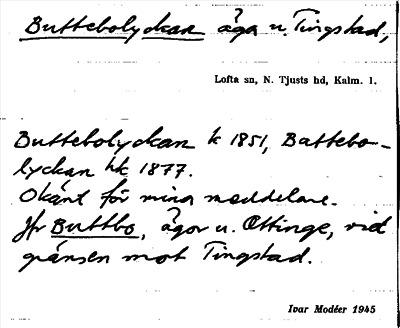 Buttebolyckan äga u. Tingstad,
Lofta sn, N. Tjusts hd, Kalm. l.
Buttebolyckan k 1851, Buttebo-
lyckan hk 1877.
Okänt för mina meddelare.
Jfr Buttbo, ägor u. Ottinge, vid
gränsen mot Tingstad.
Ivar Modéer 1945